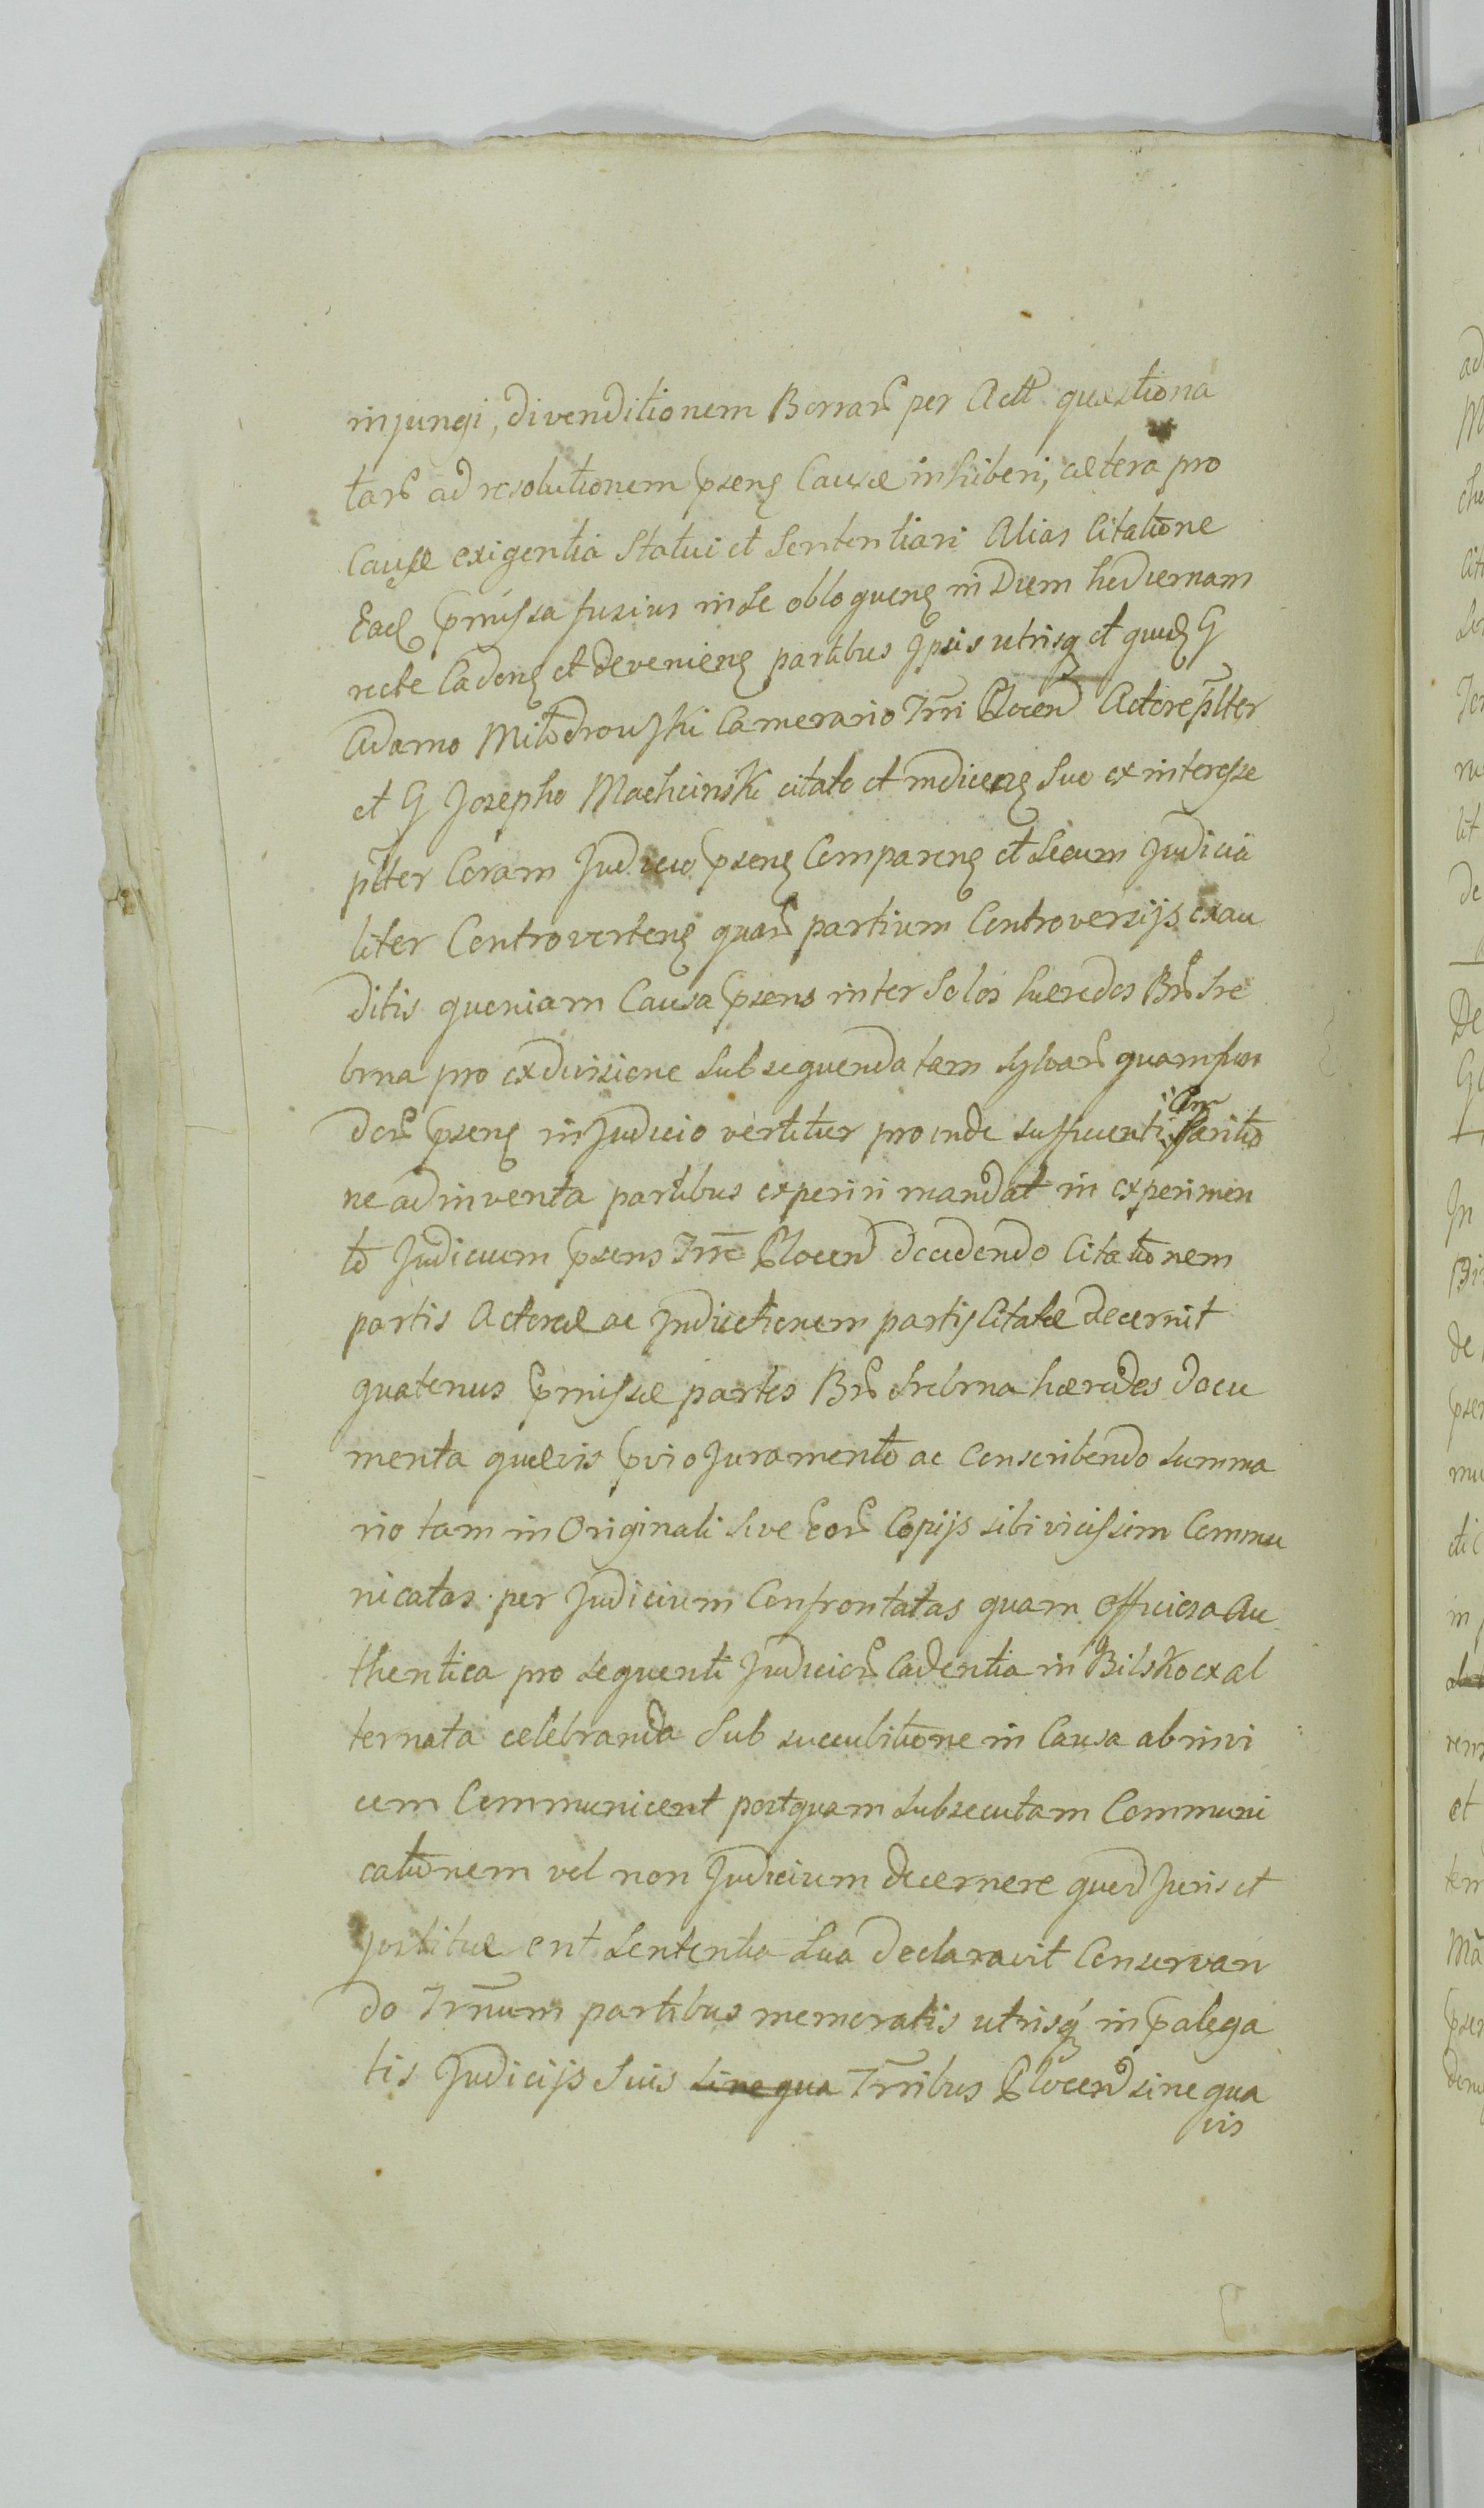 injungi, divenditionem Borrar̃ per Actt̃ quæstiona
tar̃ ad resolutionem p̃seng Causæ inhiberi, cætera pro
Causæ exigentia Statui et Sententiari Alias Citatione
Eadg p̃missa fusius in se obloqueng in Diem hodiernam
recte Cadeng et devenieng partibus Ipsis utrisq et quidg G
Adamo Miłodrowski Camerario Trri Plocen̄ Actore p̃lter
et G Josepho Machcinski citato et indiceng Suo ex interesse
p̃lter Coram Judicio p̃seng Compareng et Secum Judicia
liter Controverteng quar̃ partium Controversijs exau
ditis quoniam Causa p̃sens inter Solos hæredes Bor̃ Sre
brna pro exdivisione Subsequenda tam Sylvar̃ quam fun
dor̃ p̃seng in Judicio vertitur proinde sufficienti
ne adinventa partibus experiri mandat in experimen
to Judicium p̃sens Trre Plocen̄ decidendo Citationem
partis Actoreæ ac Inductionem partis Citatæ decernit
quatenus p̃missæ partes Bor̃ Srebrna hæredes docu
menta quævis p̃vio Juramento ac Conscribendo Summa
rio tam in Originali Sive eor̃ Copijs sibi vicissim Commu
nicatas per Judicium Confrontatas quam officiosa Au
thentica pro Sequenti Judicior̃ Cadentia in Bilsko ex al
ternata celebranda Sub succubitione in Causa abinvi
cem Communicent postquam Subsecutam Communi
cationem vel non Judicium decernere quod Juris et
Justitiæ erit Sententia Sua declaravit Conservan
do Trm̃um partibus memoratis utrisq́ in p̃alega
tis Judicijs Suis sine qua Trribus Plocen̄ sine qua
vis